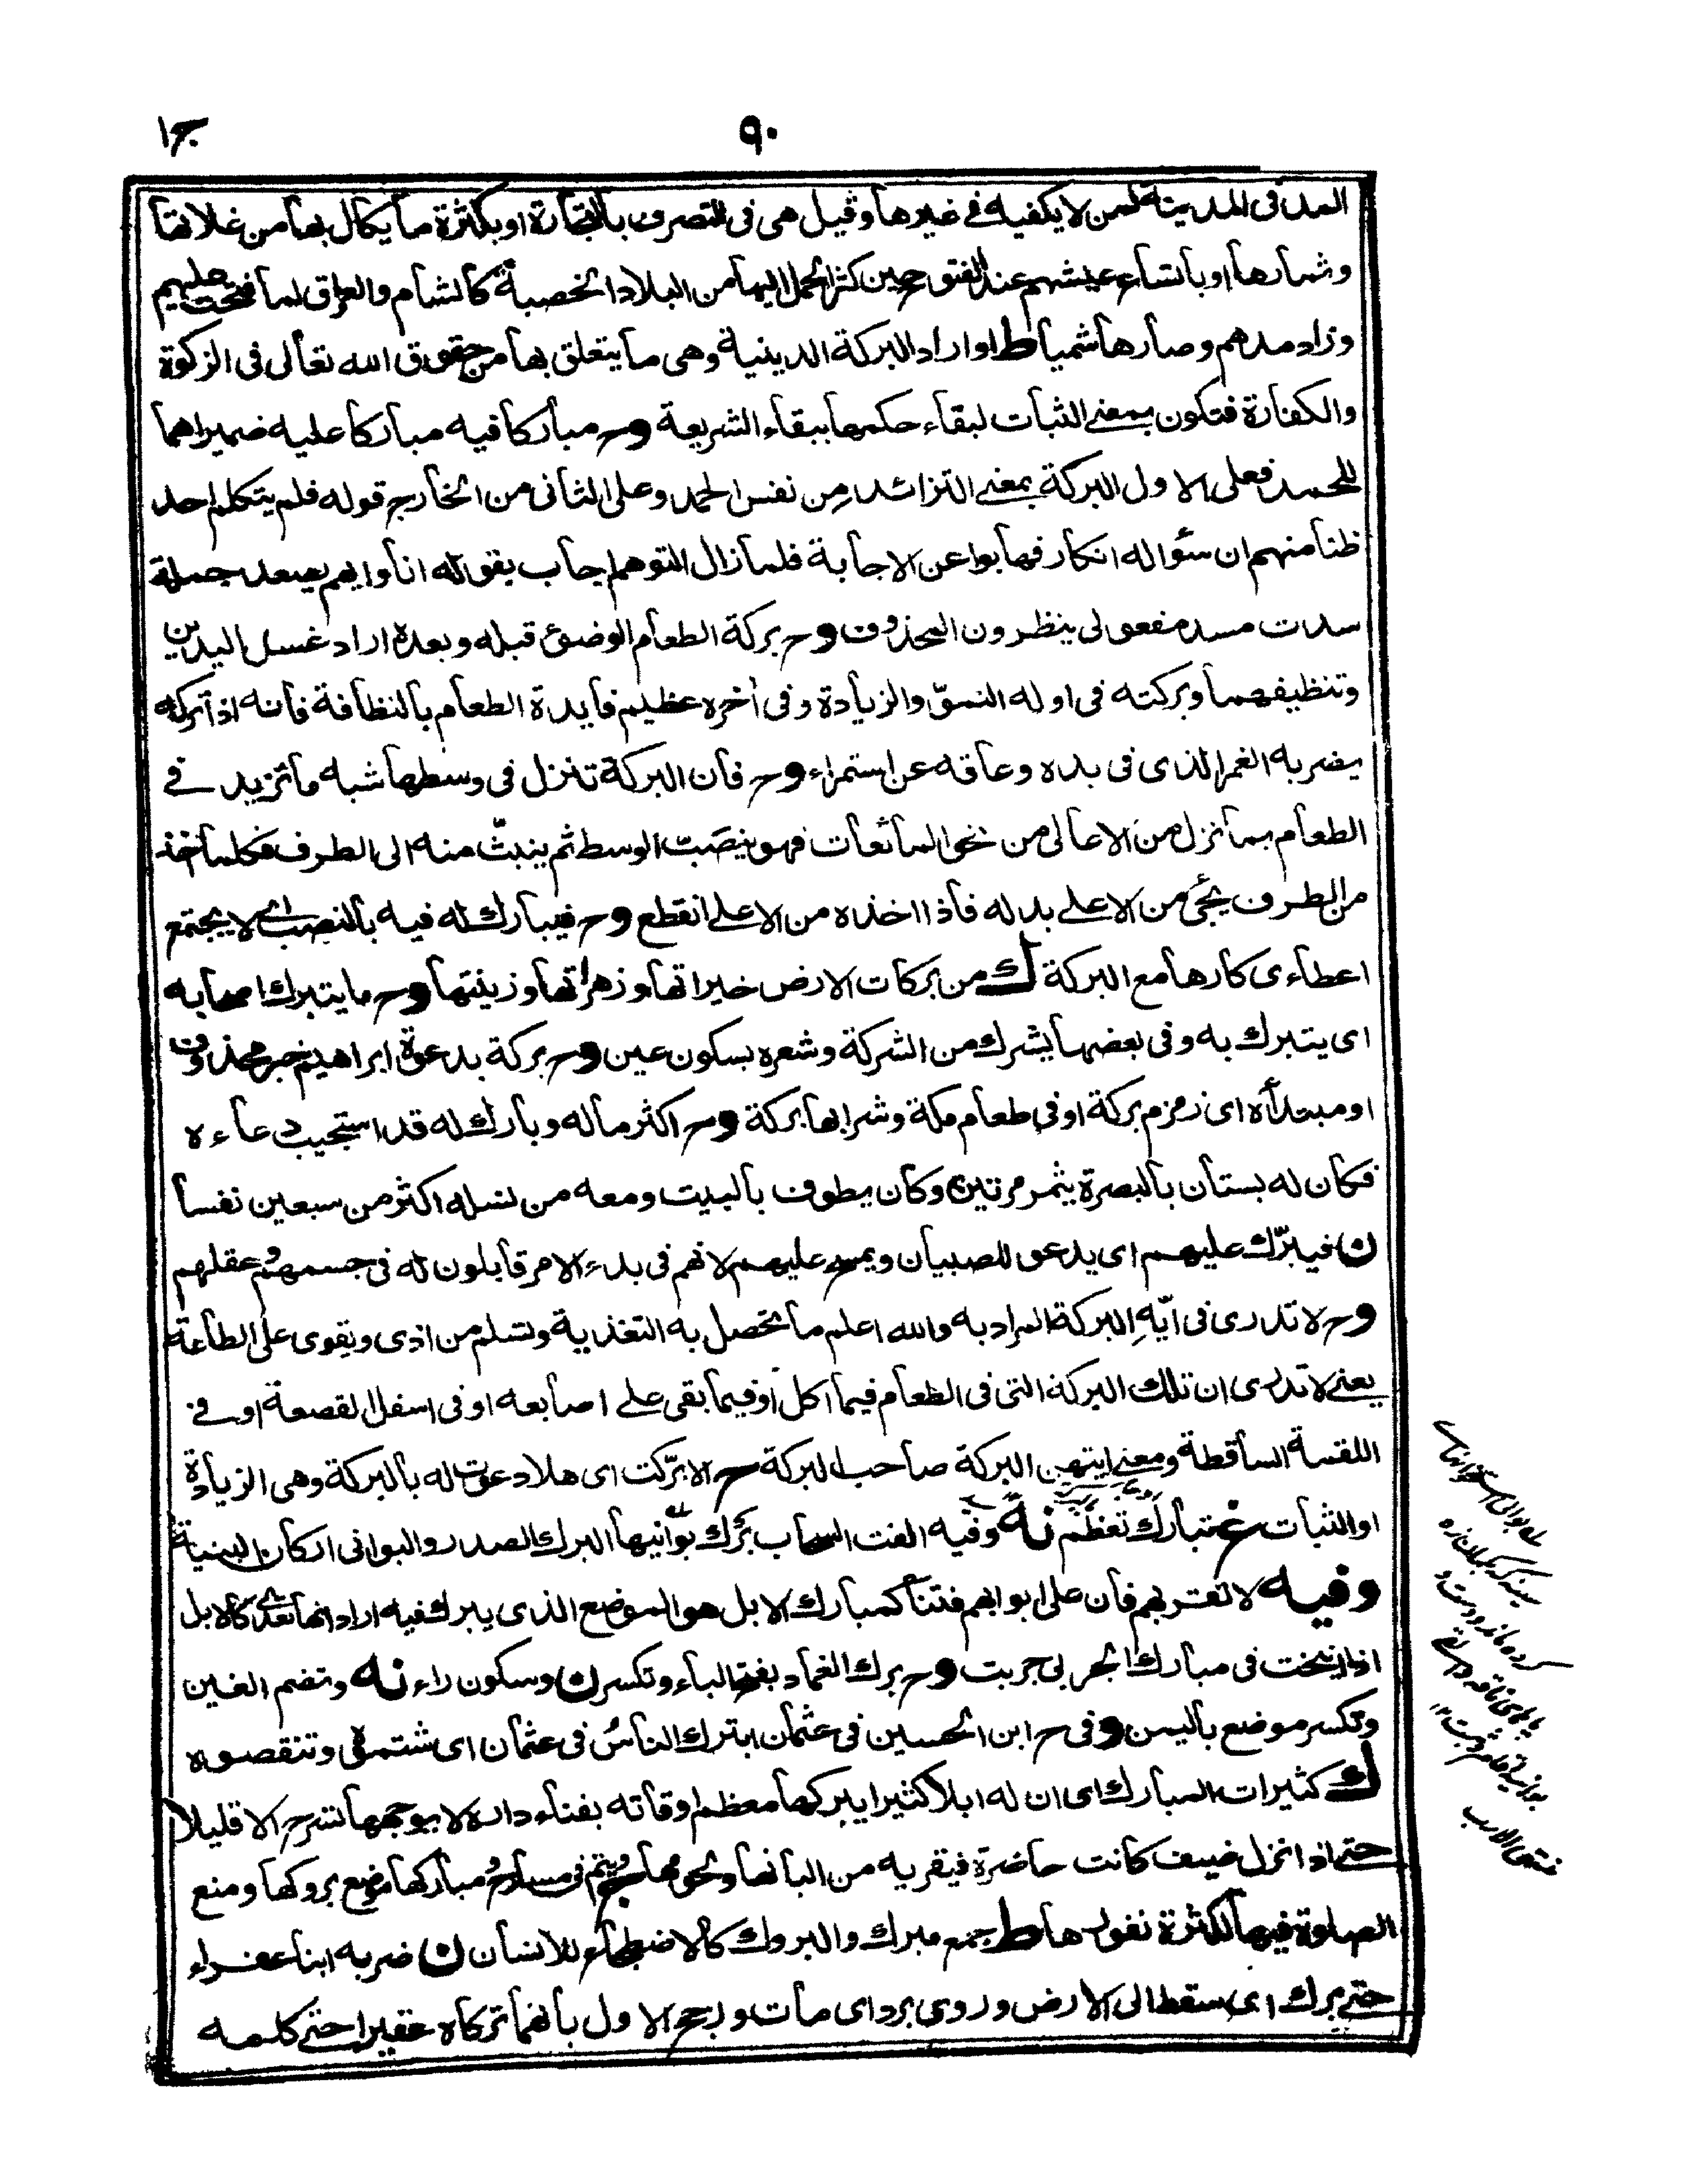 ٩٠
ج١
المد فى المدينة لمن لا يكفيه فے غيرها وقيل هى فى التصرف بالتجارة او بكثرة ما يكال بها من غلاتها
وثمارها او باتساع عيشهم عند الفتوح حين كثر الحمل اليها من البلاد الخصبة كالشام والعراق لما فتحت عليهم
وزاد مدهم وصار هاشميا ط او اراد البركة الدينية وهى ما يتعلق بها من حقوق الله تعالى فى الزكوة
والكفارة فتكون بمعنے الثبات لبقاء حكمها ببقاء الشريعة وح مباركا فيه مباركا عليه ضميراهما
للحمد فعلى الاول البركة بمعنے التزائد من نفس الحمد وعلى الثانى من الخارج قوله فلم يتكلم احد
ظنا منهم ان سؤاله انكار فهابوا عن الاجابة فلما زال التوهم اجاب بقوله انا وايهم يصعد جملة
سدت مسد مفعولى ينظرون المحذوف وح بركة الطعام الوضوء قبله وبعده اراد غسل اليدين
وتنظيفهما وبركته فى اوله النموّ والزيادة وفى أخره عظيم فايدة الطعام بالنظافة فانه اذا تركه
يضر به الغمر الذى فى يده وعاقه عن استمراء وح فان البركة تنزل فى وسطها شبه ما تزيد فے
الطعام بما نزل من الاعالى من نحو المائعات فهو ينصَبّ الوسط ثم ينبثّ منه الى الطرف فكلما أخذ
من الطرف يجئ من الاعلے بدله فاذا اخذه من الاعلے انقطع وح فيبارك له فيه بالنصب اے لا يجتمع
اعطاءى كارها مع البركة ك من بركات الارض خيراتها وزهراتها وزينتها وح ما يتبرك اصحابه
اى يتبرك به وفى بعضها يشرك من الشركة وشعره بسكون عين وح بركة بدعوة ابراهيم خبر محذوف
او مبتدأه اى زمزم بركة او فى طعام مكة وشرابها بركة وح اكثر ماله وبارك له قد استجيب دعاءه
فكان له بستان بالبصرة يثمر مرتين وكان يطوف بالبيت ومعه من نسله اكثر من سبعين نفسا
ن فيبرّك عليهم اى يدعو للصبيان ويمسح عليهم لانهم فى بدء الامر قابلون له فى جسمهم وعقلهم
وح لا تدرى فى ايّهِ البركة المراد به والله اعلم ما تحصل به التغذية وتسلم من اذى ويقوى على الطاعة
يعنے لا تدرى ان تلك البركة التى فى الطعام فيما اكل او فيما بقى علے اصابعه او فى اسفل القصعة او فے
اللقمة الساقطة ومعنے ايتهن البركة صاحب البركة ح الا برّكت اى هلا دعوت له بالبركة وهى الزيادة
او الثبات غ تبارك تعظم نه وفيه القت السحاب بَرْك بوانيها البرك الصدر والبوانى اركان البنية
وفيه لا تقربهم فان على ابوابهم فتنا كمبارك الابل هو الموضع الذى يبرك فيه اراد انها تعدى كالابل
اذا انيخت فى مبارك الجربى جربت وح برك الغماد بفتح الباء وتكسر ن وسكون راء نه وتضم الغين
وتكسر موضع باليمن وفى ح ابن الحسين فى عثمان ابترك الناسُ فى عثمان اى شتموه وتنقصوه
ك كثيرات المبارك اى ان له ابلا كثيرا يبركها معظم اوقاته بفناء داره لا يوجهها تسرح الا قليلا
حتے اذا نزل ضيف كانت حاضرة فيقريه من البانها ولحومها ويتم فى مسارح ومباركها موضع بروكها ومنع
الصلوة فيها لكثرة نفورها ط جمع مبرك والبروك كالاضطجاع للانسان ن ضربه ابنا عفراء
حتے برك اى سقط الى الارض وروى برد اى مات ورجح الاول بانهما تركاه عقيرا حتے كلمه